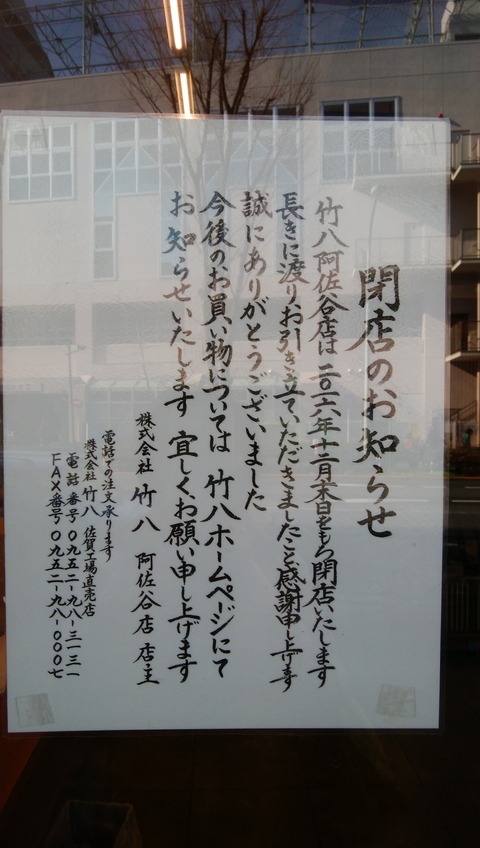 閉店のお知らせ
竹八阿佐谷店は二〇一六年十二月末日をもち閉店いたします
長きに渡りお引き立ていただきましたこと感謝申し上げます
誠にありがとうございました
今後のお買い物については 竹八ホームページにて
お知らせいたします 宜しくお願い申し上げます
株式会社 竹八 阿佐谷店 店主
電話での注文承ります
株式会社 竹八 佐賀工場直売店
電話番号〇九五二-九八-三一三一
FAX番号〇九五二-九八-〇〇〇七